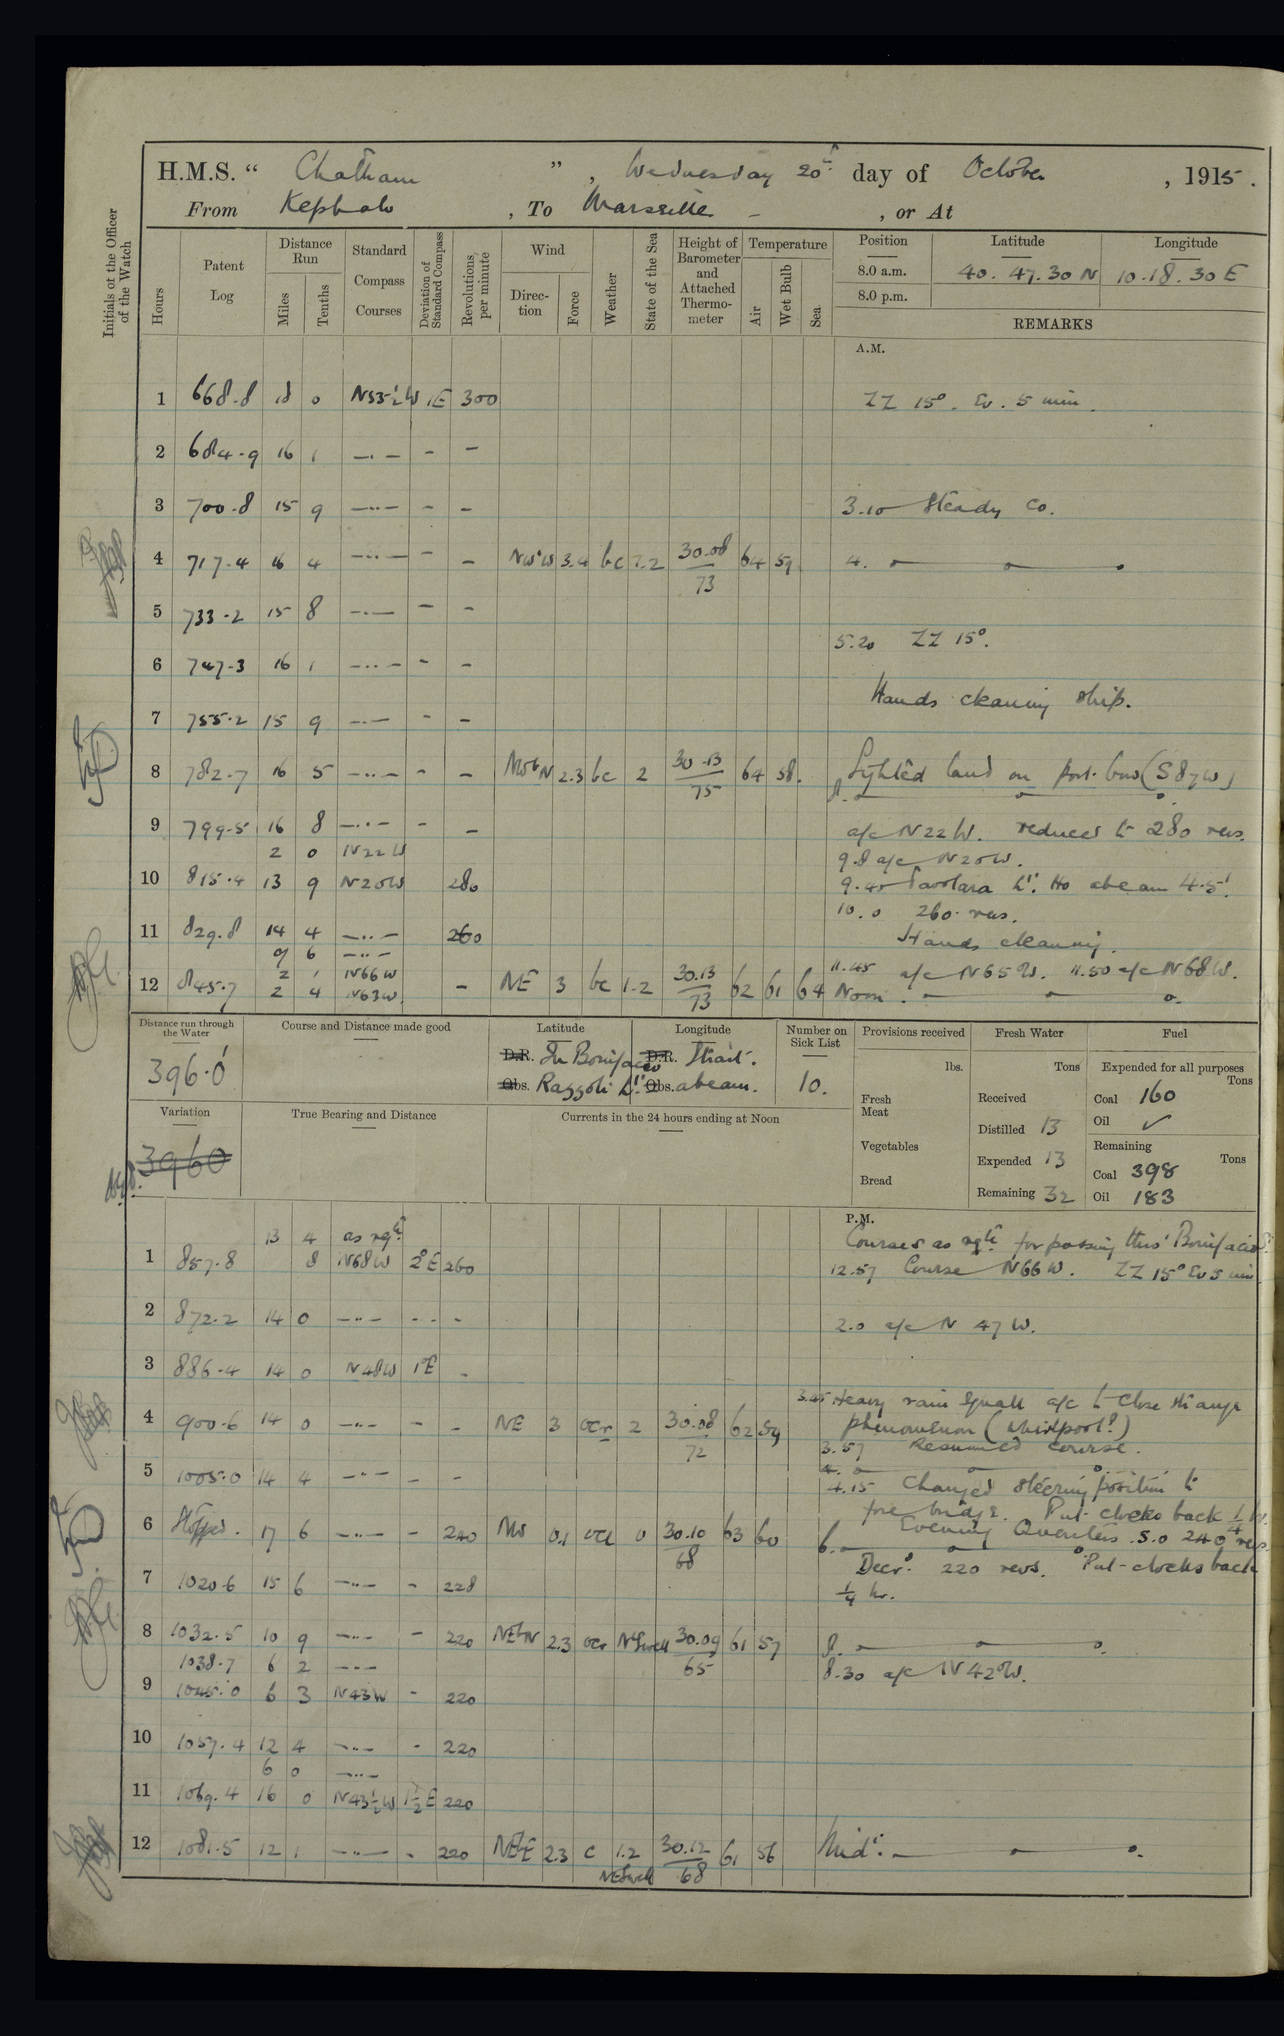 H.M.S. “ Chatham ” , Wednesday 20th day of October , 1915 .
From Kephalo , To Marseille - , or At
Initials of the Officer of the Watch
Hours
Patent Log
Distance Run
Miles Tenths
Standard Compass Courses
Deviation of Standard Compass
Revolutions per minute
Wind
Direction Force
Weather
State of the Sea
Height of Barometer and Attached Thermometer
Temperature
Air Wet Bulb Sea
Position Latitude Longitude
8.0 a.m. 40. 47. 30 N 10.18. 30 E
8.0 p.m.
REMARKS
A.M.
1 668.8 18 0 N53½W 1E 300 ZZ 15°. Ev. 5 min.
2 684.9 16 1 —"— - -
3 700.8 15 9 —"— - - 3.10 Steady Co.
4 717.4 16 4 —"— - - NW'W 3.4 bc 1.2 30.08 64 59 4.
73
5 733.2 15 8 —"— - -
5.20 ZZ 15°.
6 747.3 16 1 —"— - -
Hands cleaning ship.
7 755.2 15 9 —"— - -
8 782.7 16 5 —"— - - NWbN 2.3 bc 2 30.13 64 58. Sighted land on port bow (S87W)
75 8.
9 799.5 16 8 —"— - - a/c N22W. reduced to 280 revs.
2 0 N22W 9.8 a/c N20W.
10 815.4 13 9 N20W 280 9.40 Tavolara Lt. Ho abeam 4.5'.
10.0 260 revs.
11 829.8 14 4 —"— 260 Hands cleaning.
9 6 —"—
2 1 N66W 11.45 a/c N65W. 11.50 a/c N68W.
12 845.7 2 4 N63W - NE 3 bc 1.2 30.13 62 61 64 Noon.
73
Distance run through the Water
396.0'
Course and Distance made good
Latitude Longitude
D.R. In Bonifacio D.R. Strait.
Obs. Razzoli Lt. Obs. abeam.
Number on Sick List
10.
Provisions received
lbs.
Fresh Meat
Vegetables
Bread
Fresh Water
Tons
Received
Distilled 13
Expended 13
Remaining 32
Fuel
Expended for all purposes
Tons
Coal 160
Oil ✓
Remaining
Tons
Coal 398
Oil 183
Variation
3960
True Bearing and Distance
Currents in the 24 hours ending at Noon
P.M.
13 4 as reqte Courses as reqte for passing thro' Bonifacio St.
1 857.8 8 N68W 2°E 260 12.57 Course N66W. ZZ 15° Ev 5 min
2 872.2 14 0 —"— - - - 2.0 a/c N 47 W.
3 886.4 14 0 N48W 1°E -
3.45 Heavy rain squall a/c to close strange
4 900.6 14 0 —"— - - NE 3 ocr 2 30.08 62 59 phenomenon (Whirlpool?)
72 3.57 Resumed course.
4.
5 1005.0 14 4 —"— - - 4.15 Changed steering position to
fore bridge. Put clocks back ¼ hr.
Evening Quarters. 5.0 240 revs.
6 Stopped. 17 6 —"— - 240 NW 0.1 oc 0 30.10 63 60 6.
68
7 1020.6 15 6 —"— - 228 Decd. 220 revs. Put clocks back
¼ hr.
8 1032.5 10 9 —"— - 220 NEbN 2.3 oc NE Swell 30.09 61 57 8.
65
1038.7 6 2 —"— 8.30 a/c N42°W.
9 1045.0 6 3 N43W - 220
10 1057.4 12 4 —"— - 220
6 0 —"—
11 1069.4 16 0 N43½W 1½E 220
12 1081.5 12 1 —"— - 220 NEbE 2.3 c 1.2 30.12 61 56 Midt.
NE Swell 68